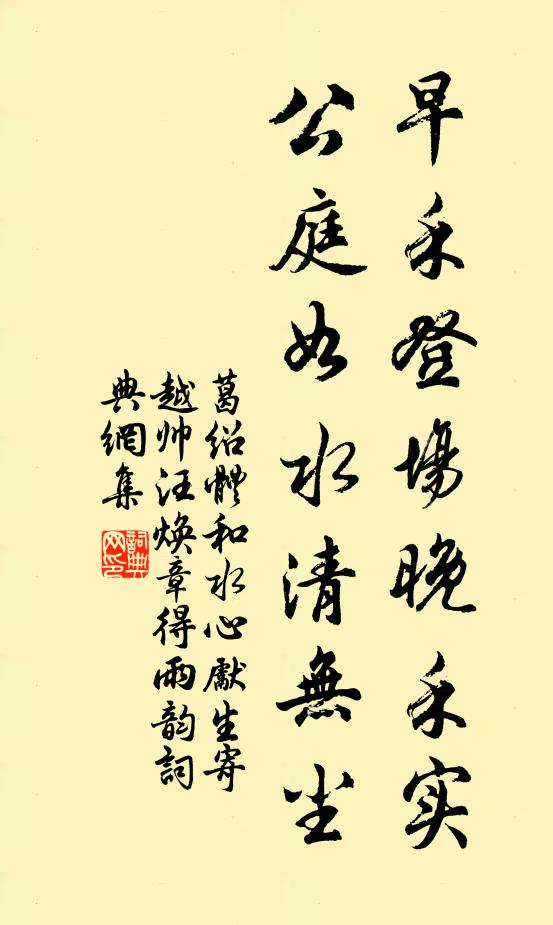 早禾登場晚禾实
公庭如水清無尘
葛绍體和水心獻生寄
越帅汪焕章得雨韵詞
典網集
詞典网印